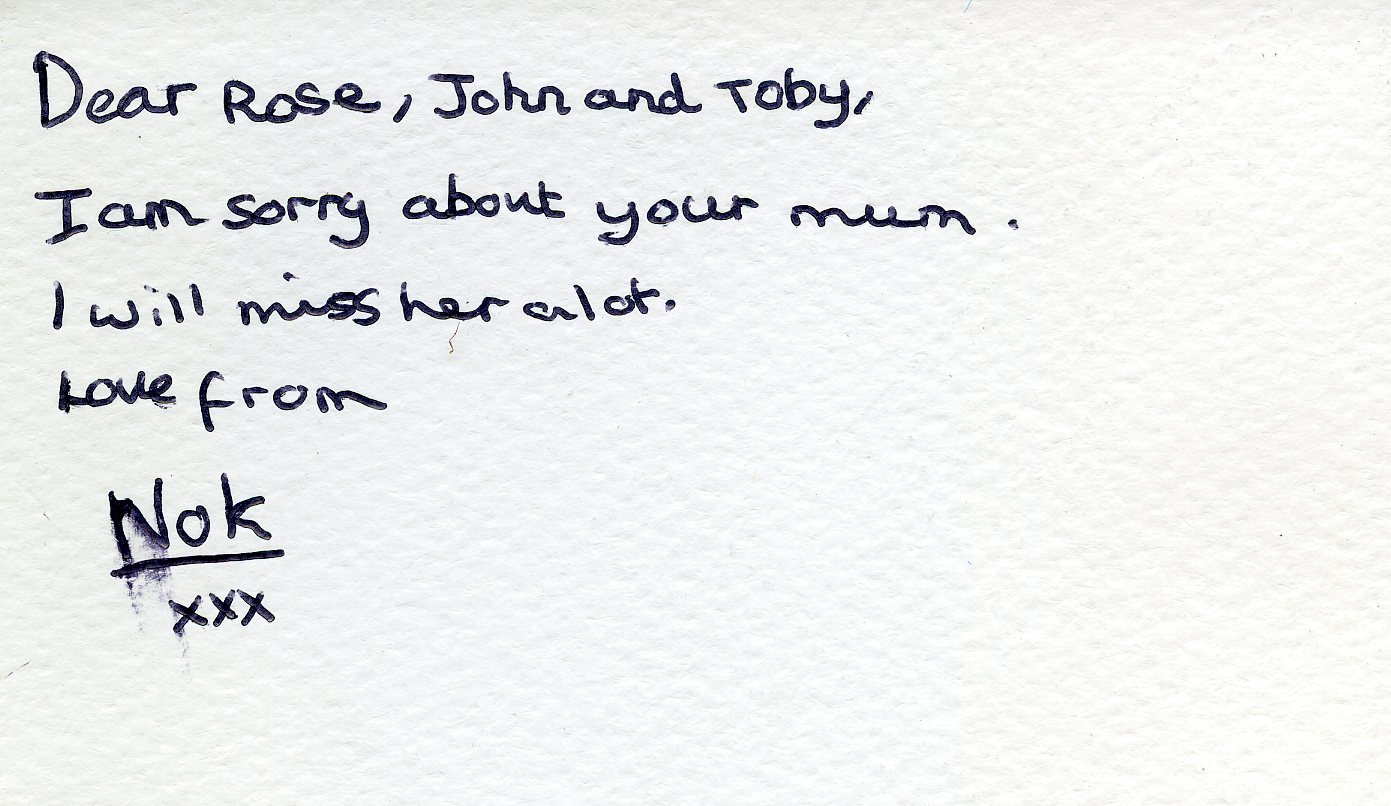 Dear Rose, John and Toby,
I am sorry about your mum.
I will miss her alot.
Love from
Nok
xxx